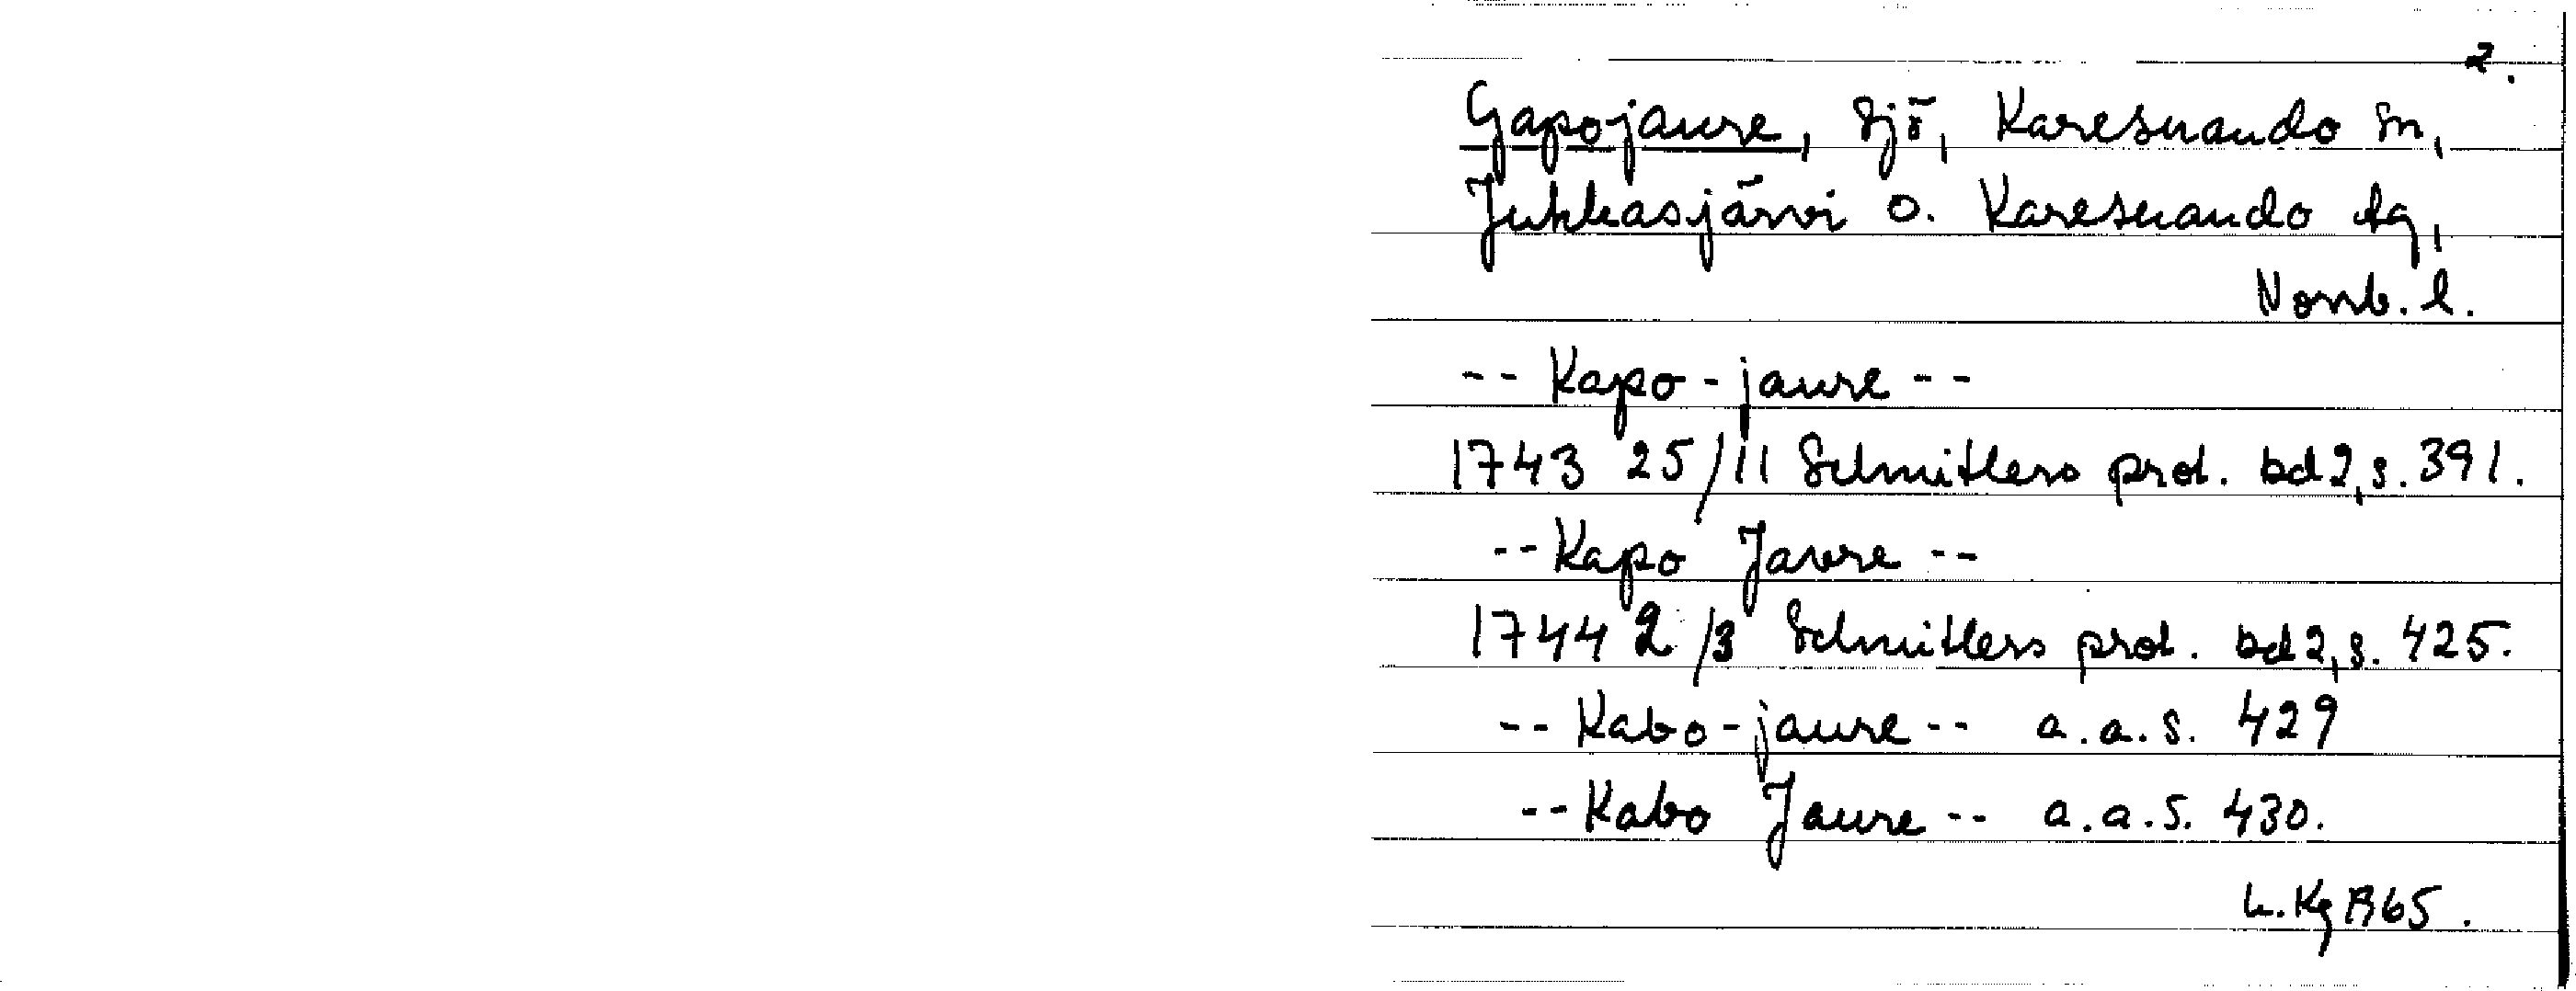 2.
Gapojaure, Sjö, Karesuando sn,
Jukkasjärvi o. Karesuando tg,
Norrb. l.
-- Kapo-jaure --
1743 25/11 Schnitlers prot. bd 2, s. 391.
-- Kapo Javre --
1744 2/3 Schnitlers prot. bd 2, s. 425.
-- Kabo-jaure -- a.a.s. 429
-- Kabo Jaure -- a.a.s. 430.
L.Kg B65.